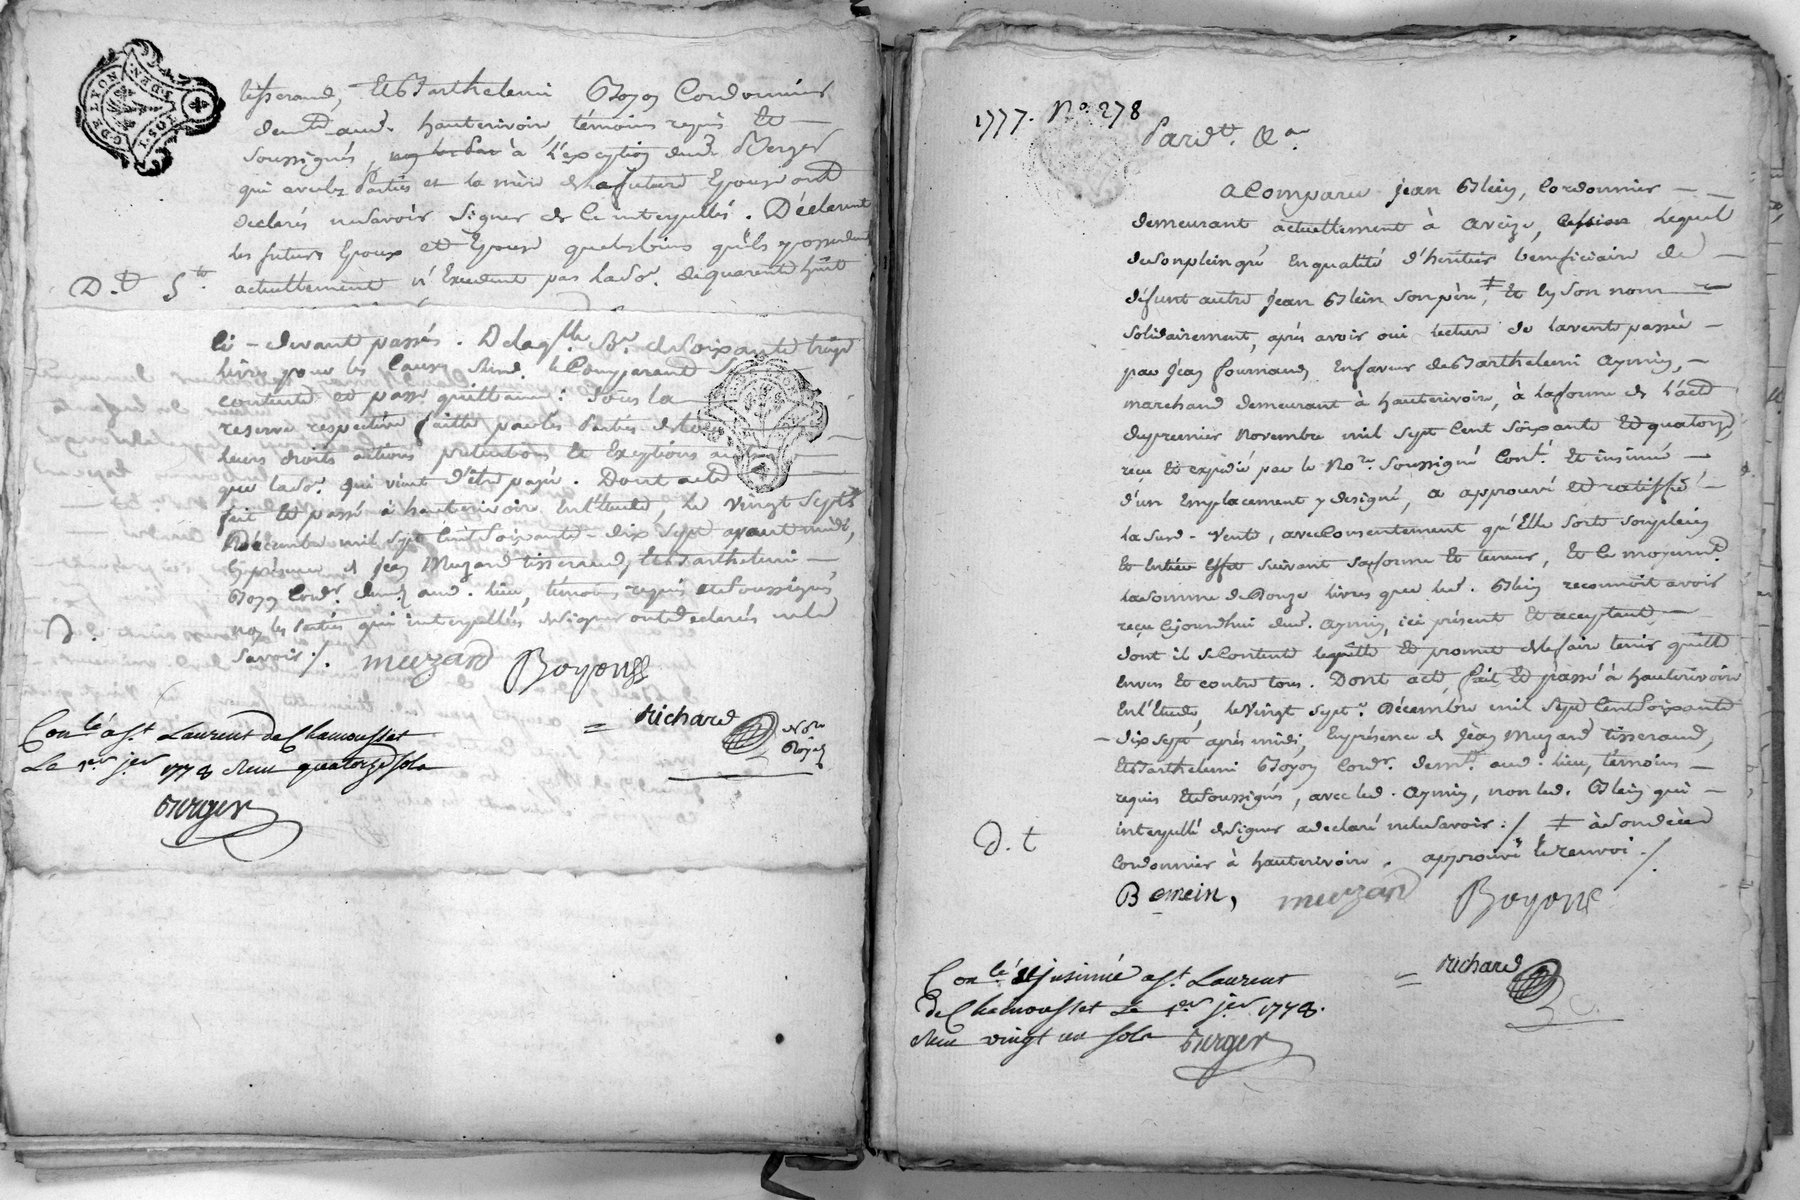 GDE LYON
tisserand, et Barthelemi Boyon Cordonnier
demt. aud. hauterivoir témoins requis et
soussignés, à l'exception dud. Berger
qui avec les Parties et la mère de la future Epouse ont
declarés ne savoir signer de ce interpellés. Déclarent
les futurs Epoux et Epouse que les biens qu'ils possedent
actuellement n'Excedent pas la So. de quarente huit
D. t 5.tt
ci-devant passés. De laqlle. Se. de soixante treize
livres pour les Causes susd. le Comparant Se
contente et passe quittance: Sous la
reserve respective faitte par les Parties de tous
leurs droits actions pretentions et Exceptions
que la So. qui vient d'être payée. Dont acte
fait et passé à hauterivoir En l'étude, le vingt sept
Décembre mil sept Cent Soixante-dix sept avant midi,
En présence de Jean Muzard tisserand, et Barthelemi
Boyon Cordr. demt. aud. lieu, témoins requis et Soussignés,
non les Parties qui interpellés de signer ont declarés ne le
D.
savoir ./. muzard Boyon
= Richard No.re Royal
Conlé à St. Laurent de Chamousset
Le 1er jer 1778 Reçu quatorze sols
Berger
1777. No. 278
Pardt. &a.
a Comparu Jean Blein, Cordonnier
demeurant actuellement à aveize, lequel
de son plein gré En qualité d'heritier beneficiaire de
défunt autre Jean Blein son père, ‡ Et En Son nom
solidairement, après avoir oui lecture de la vente passée
par Jean fournand Enfaveur de Barthelemi aymin,
marchand demeurant à hauterivoir, à la forme de l'acte
du premier Novembre mil sept Cent soixante et quatorze,
reçu Et expédié par le Nore. Soussigné Conlé. Et insinué
d'un Emplacement y designé, a approuvé et ratiffié
la susd. vente, avec Consentement qu'Elle sorte son plein
Et Entier Effet suivant sa forme Et teneur, Et ce moyennt.
la somme de Douze livres que led. Blein reconnoit avoir
reçu Cejourd'hui dud. aymin, ici présent Et acceptant
dont il se Contente le quitte Et promet de le faire tenir quitte
Envers Et contre tous. Dont acte, fait Et passé à hauterivoir
En l'Etude, le vingt sept. Décembre mil Sept Cent Soixante
-dix sept après midi, En présence de Jean Muzard tisserand,
Et Barthelemi Boyon Cordr. demt. aud. lieu, témoins
requis Et Soussignés, avec led. aymin, non led. Blein qui
interpellé de signer a declaré ne le savoir :/ ‡ à son décès
D. t
Cordonnier à hauterivoir. approuvé le renvoi ./.
B emein, muzard Boyon
= Richard
Conlé et Insinué à St. Laurent
de Chamousset Le 1er jer 1778.
Reçu vingt un sols Berger